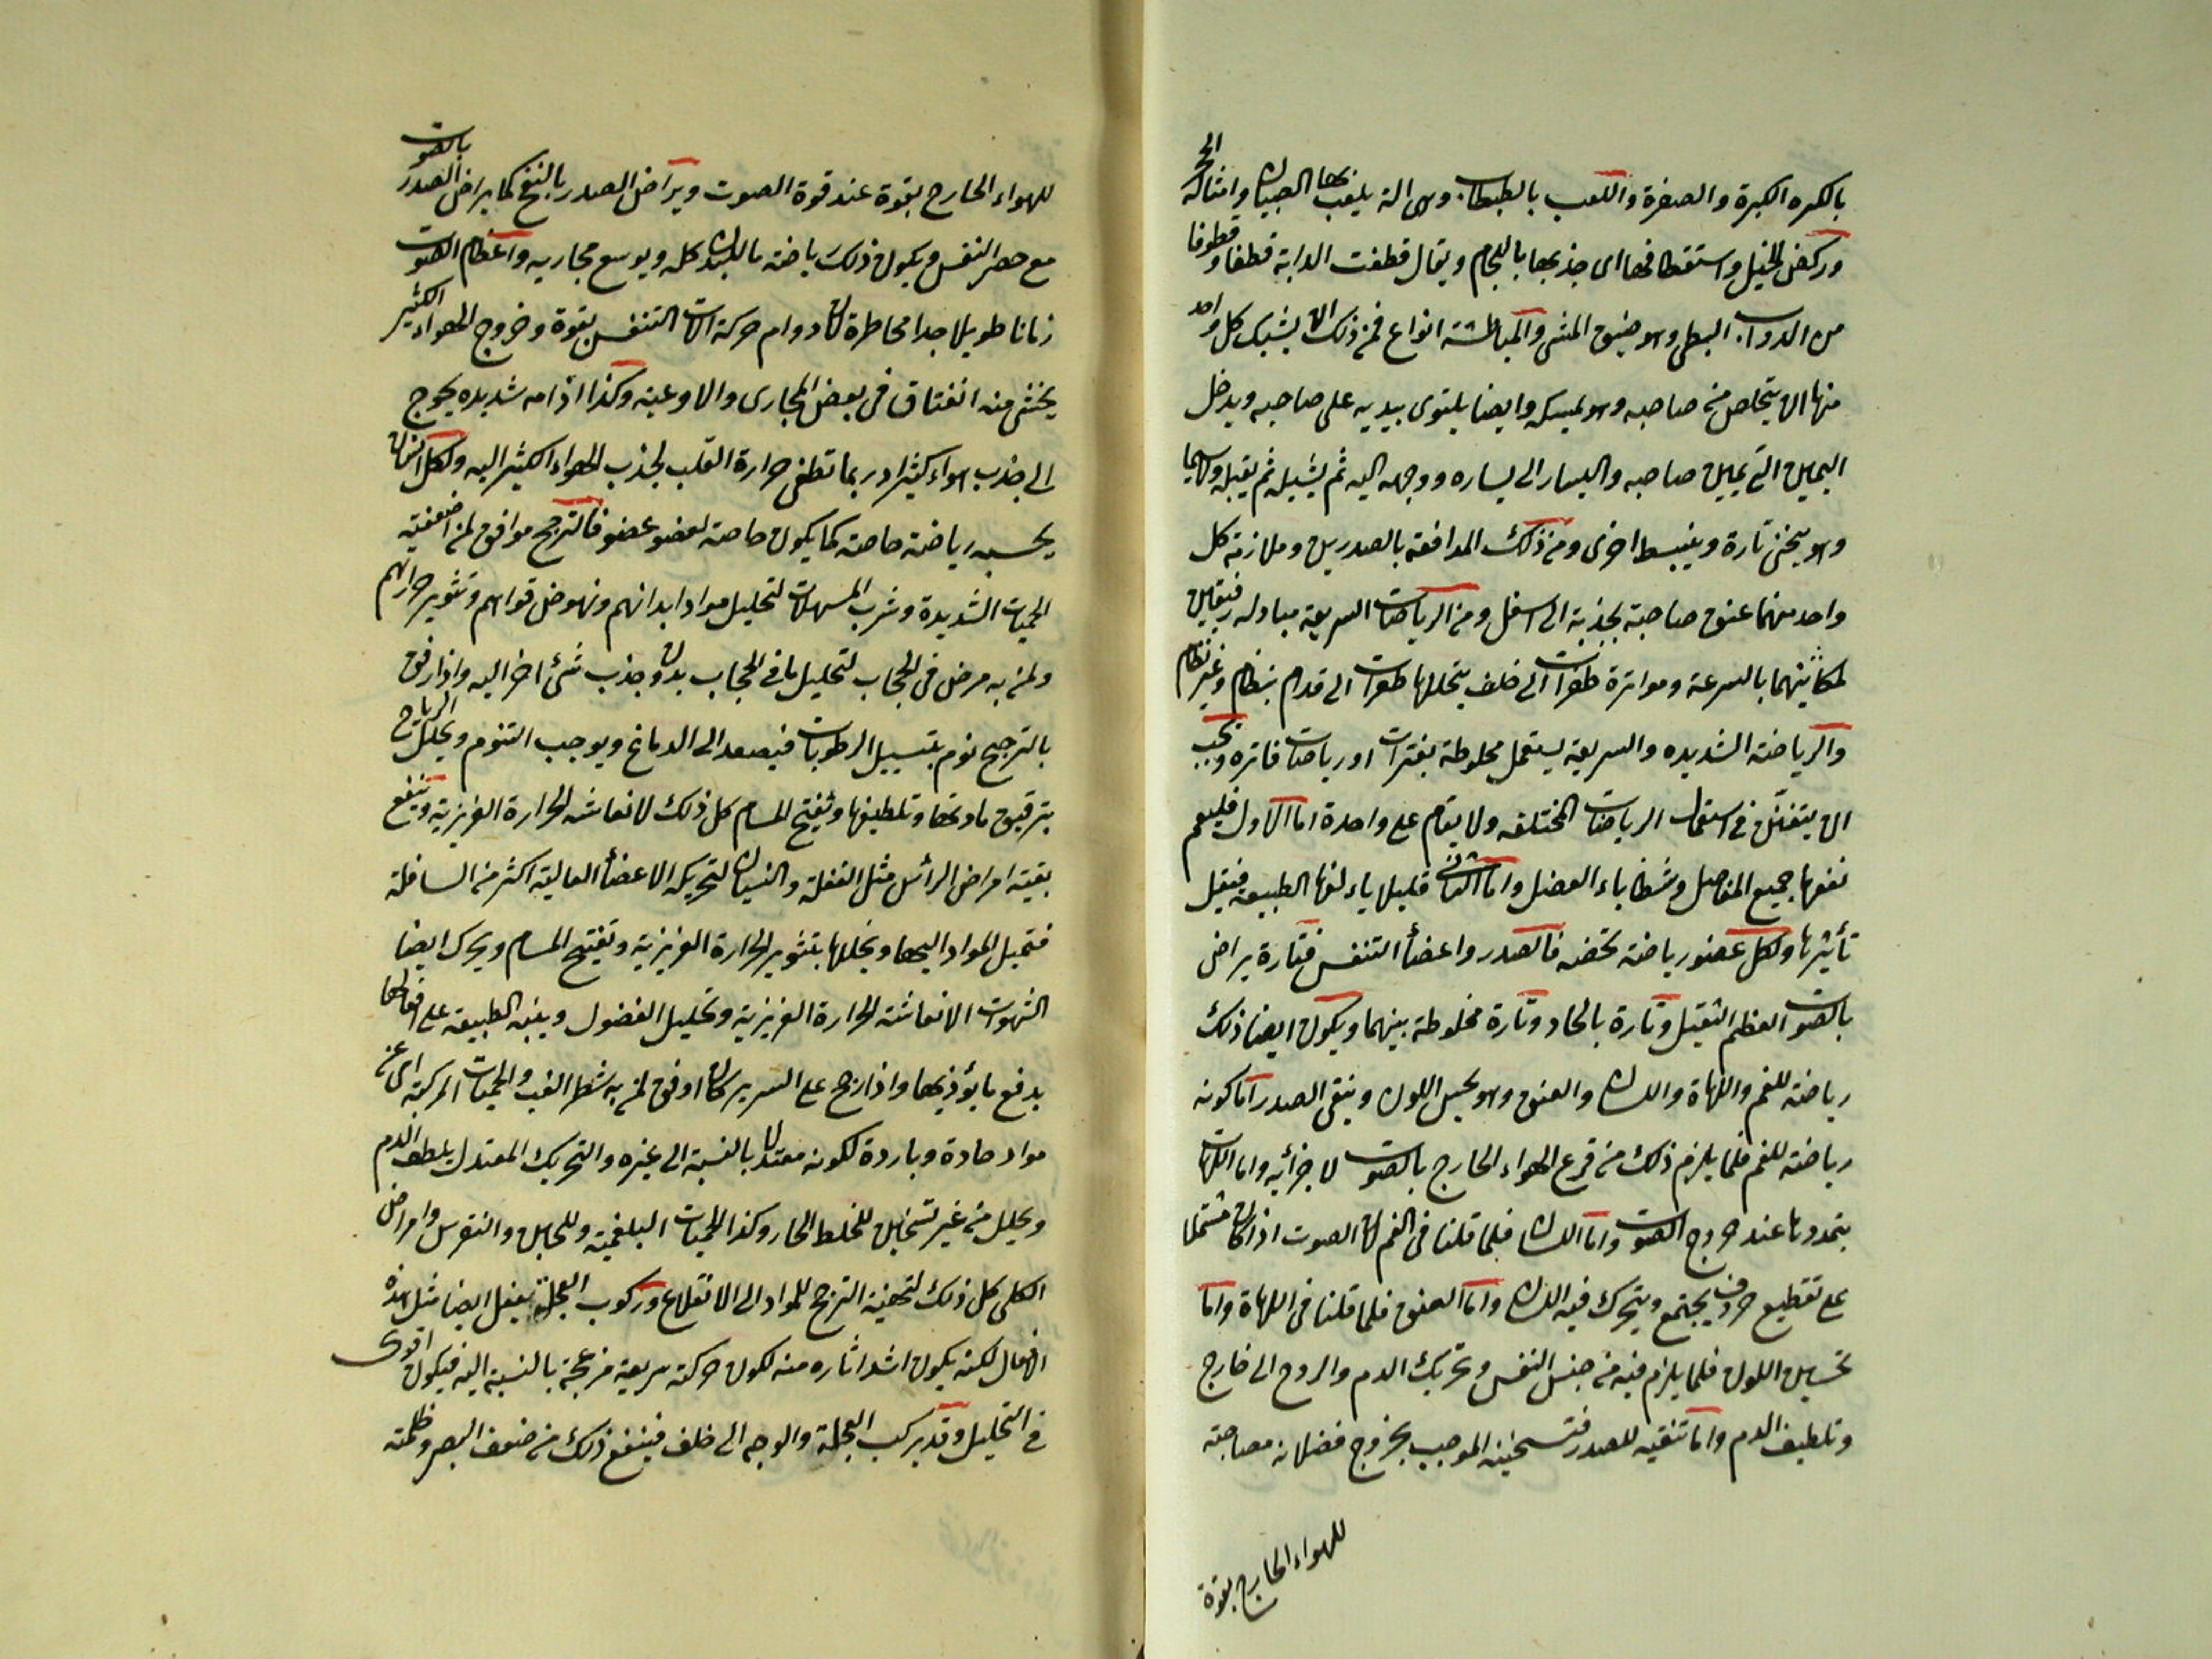 بالكره الكبرة والصغرة واللعب بالطبطاب. وهى الة يلعب بها الصبيان وامثاله الخ
وركض الخيل واستقطافها اى جذبها باللجام ويقال قطفت الدابة قطفا وقطوفا
من الدواب. البطى وهو ضيق المشى والمباطشة انواع فمن ذلك ان يشبك كل واحد
منها ان يتخلص من صاحبه وهو يمسكه وايضا يلتوى بيديه على صاحبه ويدخل
اليمين الى يمين صاحبه واليسار الى يساره ووجهه اليه ثم يشيله ثم يقبله ولاسيما
وهو ينحنى تارة وينبسط اخرى ومن ذلك المدافعة بالصدرين وملازمة كل
واحد منهما عنق صاحبة بجذبة الى اسفل ومن الرياضات السريعة مبادلة رفيقين
مكانيهما بالسرعة ومواترة طفرات الى خلف يتخللها طفرات الى قدام بنظام وغير نظام
والرياضة الشديده والسريعة يستعمل مخلوطة بفترات او رياضات فاتره ويجب
ان يتفنن فى استعمال الرياضات المختلفه ولا يقام على واحدة اما الاول فليعم
نفعها جميع المفاصل وشظاياء العضل واما الثانى فليلا يألفها الطبيعة فيقل
تأثيرها ولكل عضو رياضة تخصه فالصدر واعضأ التنفس فتارة يراض
بالصوت العظم الثقيل وتارة بالحاد وتارة مخلوطة بينهما ويكون ايضا ذلك
رياضة للفم واللهاة واللسان والعنق وهو يحسن اللون وينقى الصدر اما كونه
رياضة للفم فلما يلزم ذلك من قرع الهواء الخارج بالصوت لاجزائه واما اللهات
بتمددها عند خروج الصوت واما اللسان فلما قلنا فى الفم لان الصوت اذا كان مشتملا
على تقطيع حروف يجتمع ويتحرك فيه اللسان واما العنق فلما قلنا فى اللهاة واما
تحسين اللون فلما يلزم فيه من حبس النفس وتحريك الدم والروح الى خارج
وتلطيف الدم واما تنقيه للصدر فتسخينه الموجب بخروج فضلاته مصاحبة
للهواء الخارج بقوة
للهواء الخارج بقوة عند قوة الصوت ويراض الصدر بالنفخ كما يراض الصدر بالصوت
مع حصر النفس ويكون ذلك رياضة بالبدن كله ويوسع مجاريه واعظام الصوت
زمانا طويلا جدا مخاطرة لان دوام حركة الات التنفس بقوة وخروج الهواء الكثير
يخشى منه انفتاق فى بعض المجارى والاوعية وكذا ادامه شديده يحوج
الى جذب هواء كثيرا وربما تطفى حرارة القلب لجذب الهواء الكثير اليه ولكل انسان
يحسبه رياضة خاصة كما يكون خاصة لعضو عضو فالترجح موافق لمن اضعفته
الحميات الشديدة وشرب المسهلات لتحليل مواد ابدانهم ونهوض قواهم وتثوير حرارتهم
ولمن به مرض فى الحجاب لتحليل ما فى الحجاب بدون جذب شئ اخر اليه واذا رفق
بالترجيح نوم بتسييل الرطوبات فيصعد الى الدماغ ويوجب التنوم ويحلل الرياح
بترقيق مادتها وتلطيفها وتفتيح المسام كل ذلك لانعاشه الحرارة الغريزية وينفع
بقية امراض الرأس مثل الغفلة والنسيان لتحريكه الاعضأ العالية اكثر من السافلة
فتميل المواد اليها ويخللها بتثوير الحرارة الغريزية وتفتيح المسام ويحرك ايضا
الشهوات لانعاشته الحرارة الغريزية وتحليل الفضول وينبه الطبيعة على افعالها
بدفع ما يؤذيها واذا رجح على السرير كان اوفق لمن به شطر الغب والحميات المركبة اى من
مواد حادة وباردة لكونه معتدلا بالنسبة الى غيره والتحريك المعتدل يلطف الدم
ويحلل من غير تسخين للخلط الحار وكذا الحميات البلغمية وللحبن والنقرس وامراض
الكلى كل ذلك لتهيئة الترجح المواد الى الانقلاع وركوب العجلة يفعل ايضا مثل هذه
افعال لكنه يكون اشد اثاره منه لكون حركته سريعة مزعجة بالنسبة اليه فيكون اقوى
فى التحليل وقد يركب العجلة والوجه الى خلف فينفع ذلك من ضعف البصر وظلمته